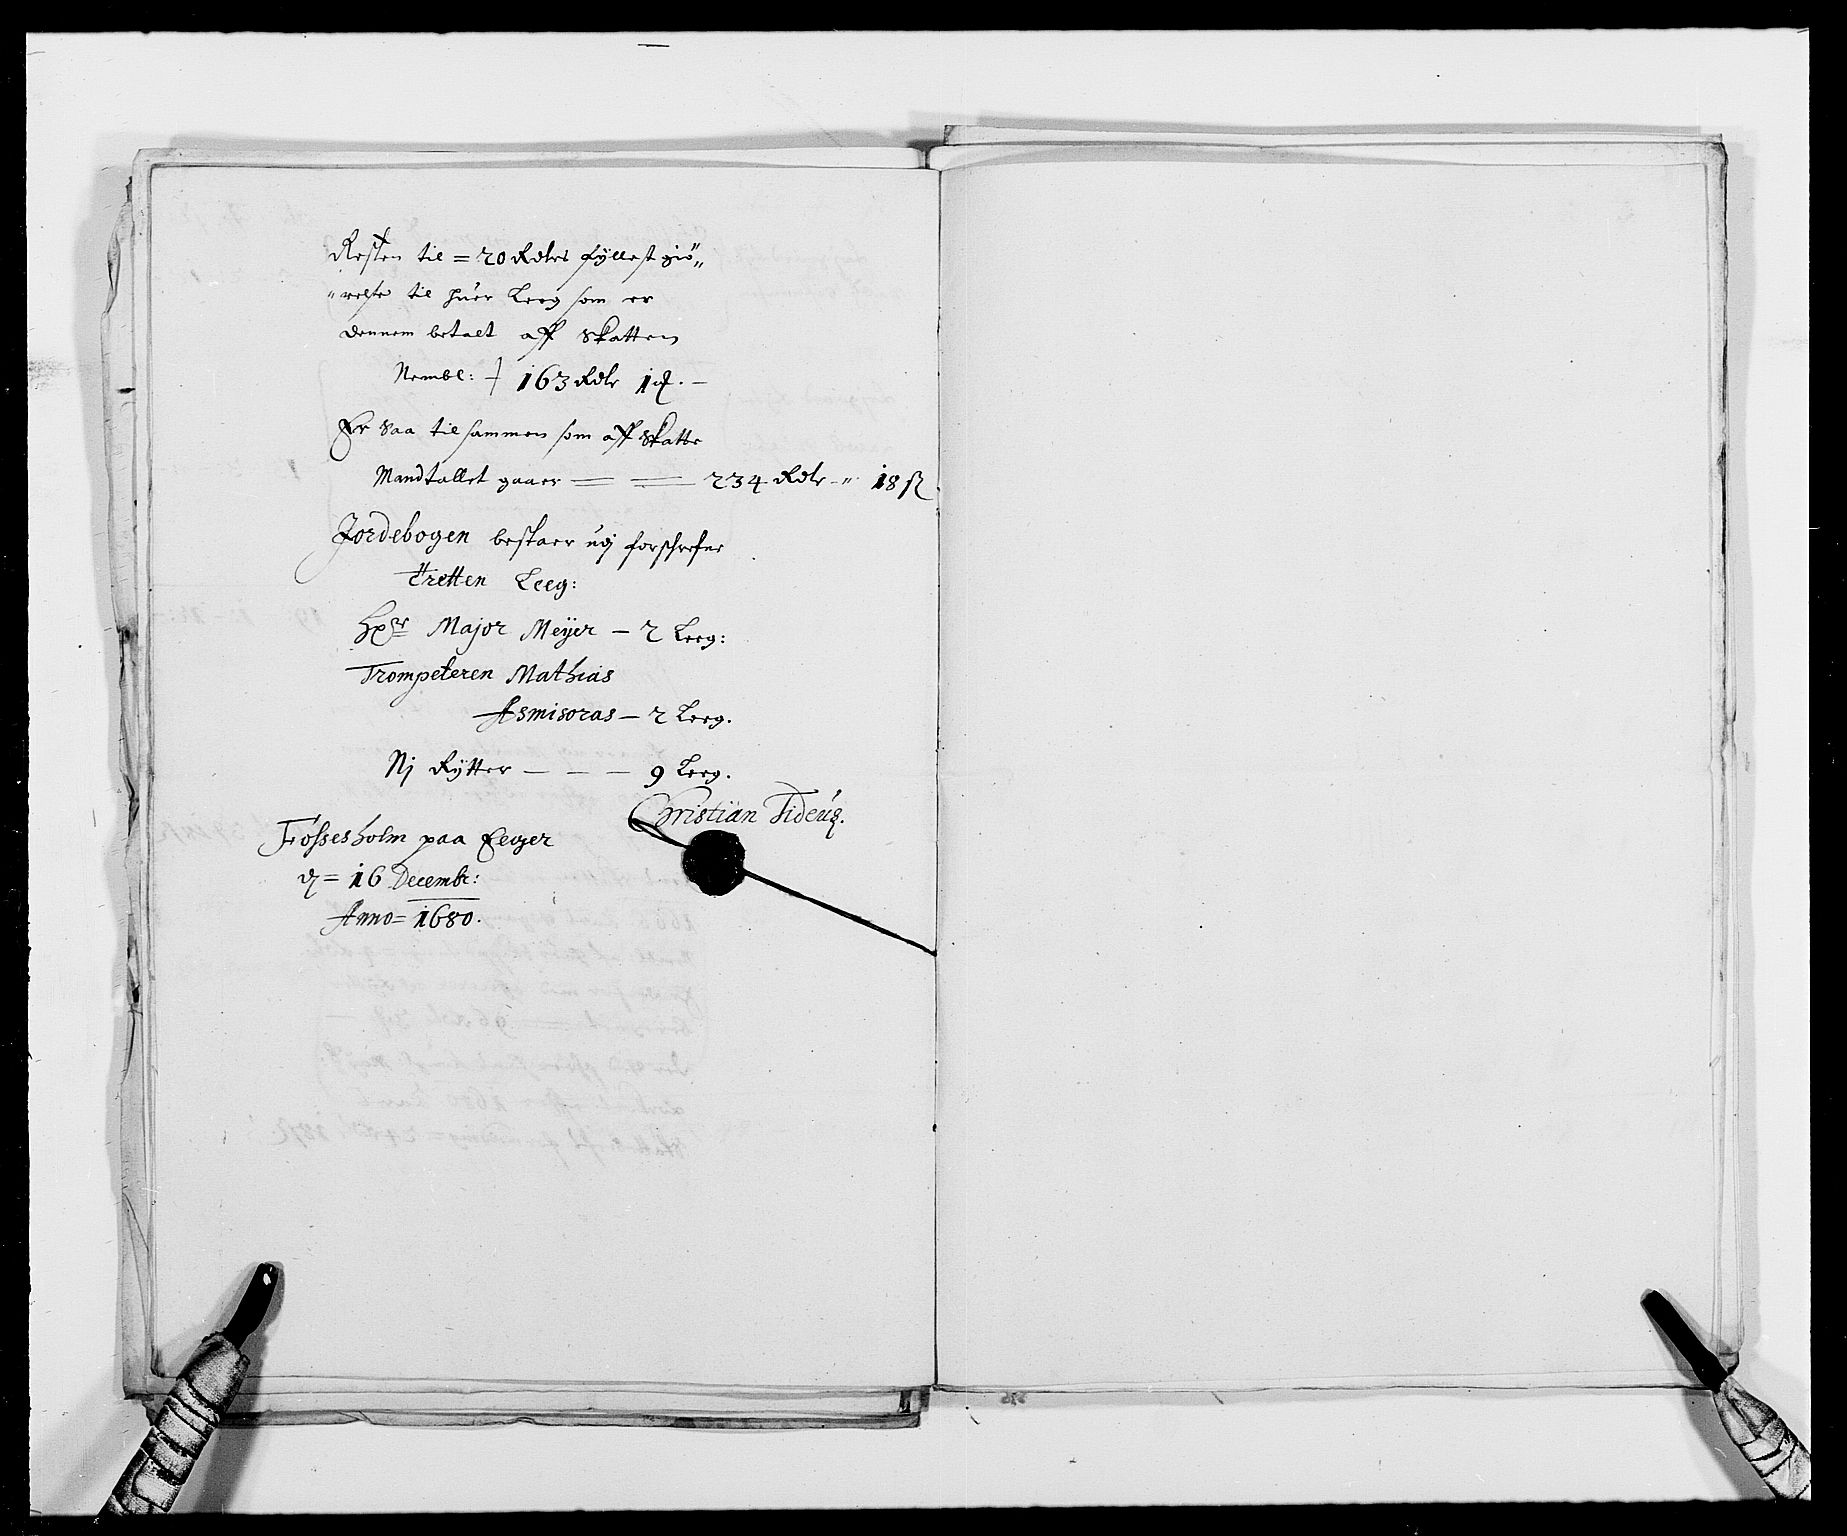 Resten til = 20 Rdlrs fyllest giö„
„relse til huer Leeg som er
dennem betalt aff Skatten
Nembl: 163 Rdlr 1 ort. –
Er Saa tilsammen som aff Skatte
Mandtallet gaaer — — 234 Rdlr - „ 18 ß
Jordebogen bestaer udj forschrefne
tretten Leeg:
Hr Major Meÿer – 2 Leeg:
Trompeteren Mathias
Asmisoras – 2 Leeg.
Nj Rÿtter – – – 9 Leeg.
Christian Tideus.
Fossesholm paa Eeger
d = 16 Decembr:
Anno = 1680.